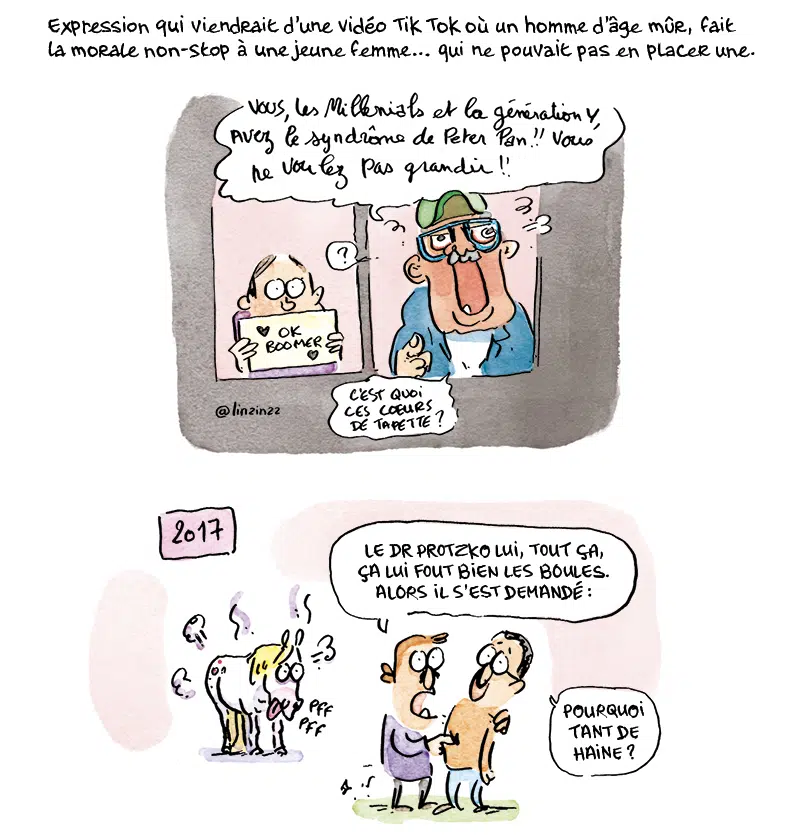 Expression qui viendrait d'une vidéo Tik Tok où un homme d'âge mûr, fait
la morale non-stop à une jeune femme... qui ne pouvait pas en placer une.
Vous, les Millenials et la génération Y,
avez le syndrôme de Peter Pan!! Vous
ne voulez pas grandir!!
?
OK
BOOMER
@linzinzz
C'EST QUOI
CES COEURS
DE TAPETTE?
2017
LE DR PROTZKO LUI, TOUT ÇA,
ÇA LUI FOUT BIEN LES BOULES.
ALORS IL S'EST DEMANDÉ:
PFF
PFF
POURQUOI
TANT DE
HAINE?